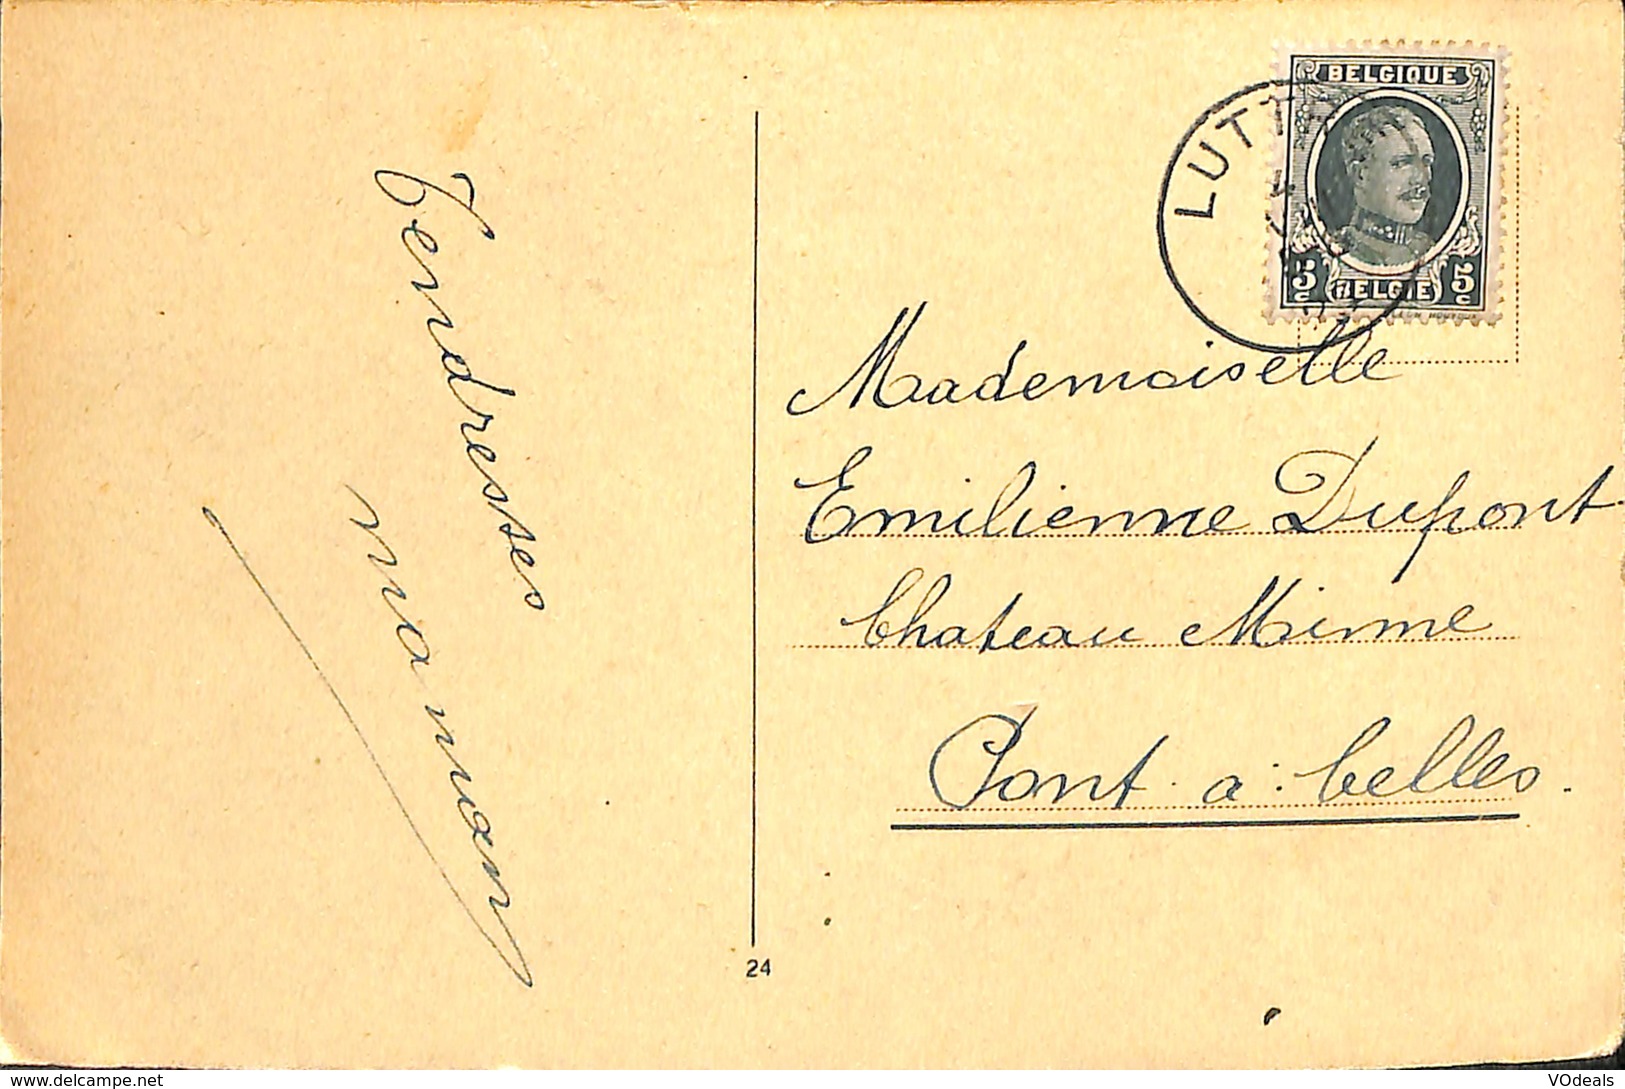 Tendresses
maman
BELGIQUE
LUTT
5 c
BELGIE
5 c
Mademoiselle
Emilienne Dupont
Chateau Mirme
Pont à celles.
24
www.delcampe.net
VOdeals